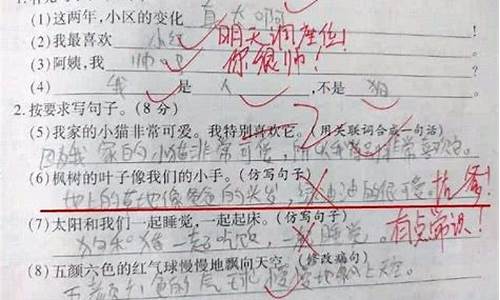 (1)这两年，小区的变化 真大啊
(2)我最喜欢 小红 明天调座位！
(3)阿姨，我 帅吧 你很帅！
(4) 我 是 人 ,不是 狗
2.按要求写句子。(8 分)
(5)我家的小猫非常可爱。我特别喜欢它。(用关联词合成一句话)
因为我家的小猫非常可爱，所以我非常喜欢它。
(6)枫树的叶子像我们的小手。(仿写句子)
地上的草地像爸爸的头发，绿油油的很可爱。找爹！
(7)太阳和我们一起睡觉，一起起床。(仿写句子)
狗和猪一起吃饭，一起睡觉。有点常识！
(8)五颜六色的红气球慢慢地飘向天空。(修改病句)
五颜六色的气球慢慢地飘上天空。